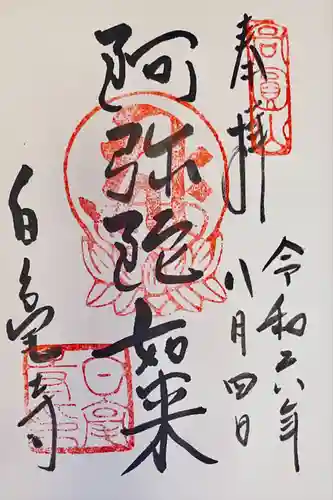 奉拝
高円山
令和六年
八月四日
阿弥陀如来
白毫寺